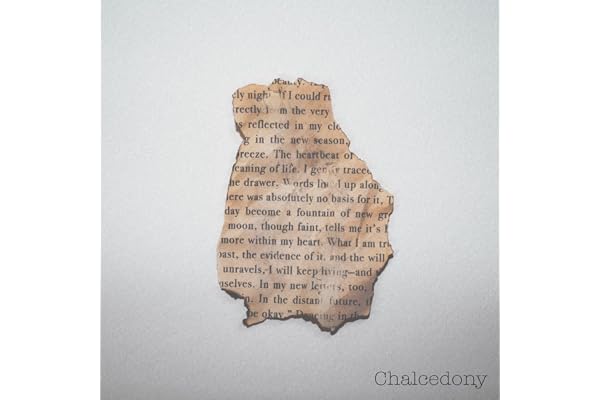 ly night. "If I could
rectly from the very
reflected in my
g in the new season,
reeze. The heartbeat of
eaning of life. I gently traced
he drawer. Words lined up
ere was absolutely no basis for it,
day become a fountain of new
moon, though faint, tells me it's
more within my heart. What I am
past, the evidence of it, and the will
unravels, I will keep living—and
selves. In my new letters, too,
In the distant future,
be okay." Dancing in
Chalcedony